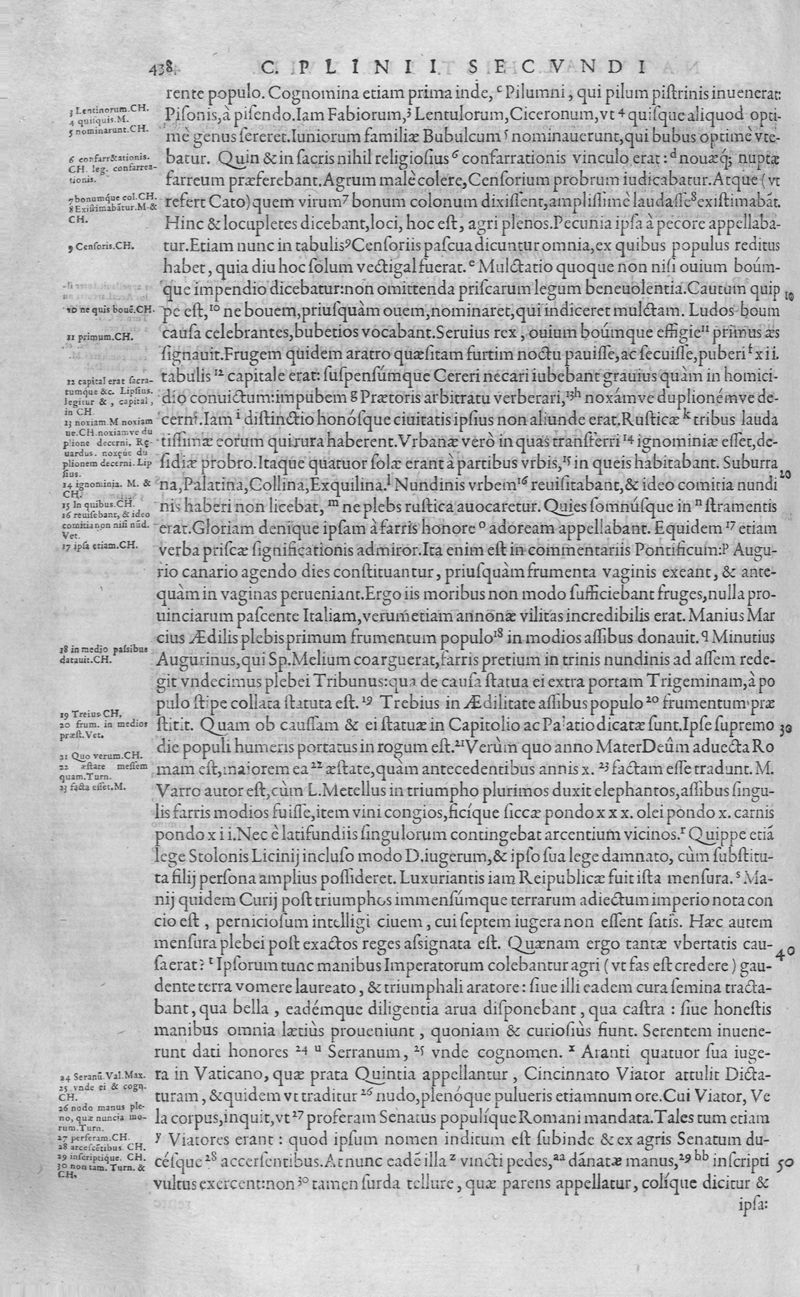 438 C. PLINII SECVNDI
rente populo. Cognomina etiam prima inde, ᶜ Pilumni, qui pilum piſtrinis inuenerat:
Piſonis, à piſendo. Iam Fabiorum, ³ Lentulorum, Ciceronum, vt ⁴ quiſque aliquod opti-
mè genus ſereret. Iuniorum familiæ Bubulcum ⁵ nominauerunt, qui bubus optimè vte-
batur. Quin & in ſacris nihil religioſius ⁶ confarrationis vinculo erat: ᵈ nouæq; nuptæ
farreum præferebant. Agrum malè colere, Cenſorium probrum iudicabatur. Atque (vt
refert Cato) quem virum ⁷ bonum colonum dixiſſent, ampliſſimè laudaſſe ⁸ exiſtimabāt.
Hinc & locupletes dicebant, loci, hoc eſt, agri plenos. Pecunia ipſa à pecore appellaba-
tur. Etiam nunc in tabulis ⁹ Cenſoriis paſcua dicuntur omnia, ex quibus populus reditus
habet, quia diu hoc ſolum vectigal fuerat. ᵉ Mulctatio quoque non niſi ouium boúm-
que impendio dicebatur: non omittenda priſcarum legum beneuolentia. Cautum quip 10
pe eſt, ¹⁰ ne bouem, priuſquàm ouem, nominaret, qui indiceret mulctam. Ludos boum
cauſa celebrantes, bubetios vocabant. Seruius rex, ouium boúmque effigie ¹¹ primus æs
ſignauit. Frugem quidem aratro quæſitam furtim noctu pauiſſe, ac ſecuiſſe, puberi ᶠ xii.
tabulis ¹² capitale erat: ſuſpenſúmque Cereri necari iubebant grauius quàm in homici-
dio conuictum: impubem ᵍ Prætoris arbitratu verberari, ¹³ʰ noxámve duplionémve de-
cerni. Iam ⁱ diſtinctio honóſque ciuitatis ipſius non aliunde erat. Ruſticæ ᵏ tribus lauda
tiſſimæ eorum qui rura haberent. Vrbanæ verò in quas transferri ¹⁴ ignominiæ eſſet, de-
ſidiæ probro. Itaque quatuor ſolæ erant à partibus vrbis, ¹⁵ in queis habitabant. Suburra
na, Palatina, Collina, Exquilina. ˡ Nundinis vrbem ¹⁶ reuiſitabant, & ideo comitia nundi 20
nis haberi non licebat, ᵐ ne plebs ruſtica auocaretur. Quies ſomnúſque in ⁿ ſtramentis
erat. Gloriam denique ipſam à farris honore ᵒ adoream appellabant. Equidem ¹⁷ etiam
verba priſcæ ſignificationis admiror. Ita enim eſt in commentariis Pontificum: ᵖ Augu-
rio canario agendo dies conſtituantur, priuſquàm frumenta vaginis exeant, & ante-
quàm in vaginas perueniant. Ergo iis moribus non modo ſufficiebant fruges, nulla pro-
uinciarum paſcente Italiam, verum etiam annonæ vilitas incredibilis erat. Manius Mar
cius Ædilis plebis primum frumentum populo ¹⁸ in modios aſſibus donauit. ᑫ Minutius
Augurinus, qui Sp. Melium coarguerat, farris pretium in trinis nundinis ad aſſem rede-
git vndecimus plebei Tribunus: qua de cauſa ſtatua ei extra portam Trigeminam, à po
pulo ſtipe collata ſtatuta eſt. ¹⁹ Trebius in Ædilitate aſſibus populo ²⁰ frumentum præ
ſtitit. Quam ob cauſſam & ei ſtatuæ in Capitolio ac Palatio dicatæ ſunt. Ipſe ſupremo 30
die populi humeris portatus in rogum eſt. ²¹ Verùm quo anno Mater Deûm aduecta Ro
mam eſt, maiorem ea ²² æſtate, quàm antecedentibus annis x. ²³ factam eſſe tradunt. M.
Varro autor eſt, cùm L. Metellus in triumpho plurimos duxit elephantos, aſſibus ſingu-
lis farris modios fuiſſe, item vini congios, ficíque ſiccæ pondo xxx. olei pondo x. carnis
pondo xii. Nec è latifundiis ſingulorum contingebat arcentium vicinos. ʳ Quippe etiā
lege Stolonis Licinij incluſo modo D. iugerum, & ipſo ſua lege damnato, cùm ſubſtitu-
ta filij perſona amplius poſſideret. Luxuriantis iam Reipublicæ fuit iſta menſura. ˢ Ma-
nij quidem Curij poſt triumphos immenſúmque terrarum adiectum imperio nota con
cio eſt, pernicioſum intelligi ciuem, cui ſeptem iugera non eſſent ſatis. Hæc autem
menſura plebei poſt exactos reges aſsignata eſt. Quænam ergo tantæ vbertatis cau- 40
ſa erat? ᵗ Ipſorum tunc manibus Imperatorum colebantur agri (vt fas eſt credere) gau-
dente terra vomere laureato, & triumphali aratore: ſiue illi eadem cura ſemina tracta-
bant, qua bella, eadémque diligentia arua diſponebant, qua caſtra: ſiue honeſtis
manibus omnia lætiùs proueniunt, quoniam & curioſiùs fiunt. Serentem inuene-
runt dati honores ²⁴ ᵘ Serranum, ²⁵ vnde cognomen. ˣ Aranti quatuor ſua iuge-
ra in Vaticano, quæ prata Quintia appellantur, Cincinnato Viator attulit Dicta-
turam, & quidem vt traditur ²⁶ nudo, plenóque pulueris etiamnum ore. Cui Viator, Ve
la corpus, inquit, vt ²⁷ proferam Senatus populíque Romani mandata. Tales tum etiam
ʸ Viatores erant: quod ipſum nomen inditum eſt ſubinde & ex agris Senatum du-
céſque ²⁸ accerſentibus. At nunc eadē illa ᶻ vincti pedes, ᵃᵃ dánatæ manus, ²⁹ ᵇᵇ inſcripti 50
vultus exercent: non ³⁰ tamen ſurda tellure, quæ parens appellatur, colíque dicitur &
ipſa:
3 Lentinorum. CH.
4 quiiquis. M.
5 nominarunt. CH.
6 confarreationis.
CH. leg. confarrea-
tionis.
7 bonumque col. CH.
8 Exiſtimabātur. M. &
CH.
9 Cenſoris. CH.
10 ne quis bouē. CH.
11 primum. CH.
12 capital erat ſacra-
tumque &c. Lipſius.
legitur &, capital,
in CH
13 noxiam M noxiam
ue. CH. noxiamve du
plione decerni. Rg-
uardus. noxque du
plionem decerni. Lip
ſius.
14 ignominia. M. &
CH.
15 In quibus. CH
16 reuiſebant, & ideo
comitia non niſi nūd.
Vet.
17 ipſa etiam. CH.
18 in medio paſsibus
datauit. CH.
19 Treius CH.
20 frum. in medios
præſt. Vet.
21 Quo verum. CH.
22 æſtare meſſem
quam. Turn.
23 facta eſſet. M.
24 Seranū. Val. Max.
25 vnde ei & cogn.
CH.
26 nodo manus ple-
no, quæ nuncia mo-
rum. Turn.
27 perferam. CH.
28 arceſcētibus. CH.
29 inſcriptique. CH.
30 non tam. Turn. &
CH.